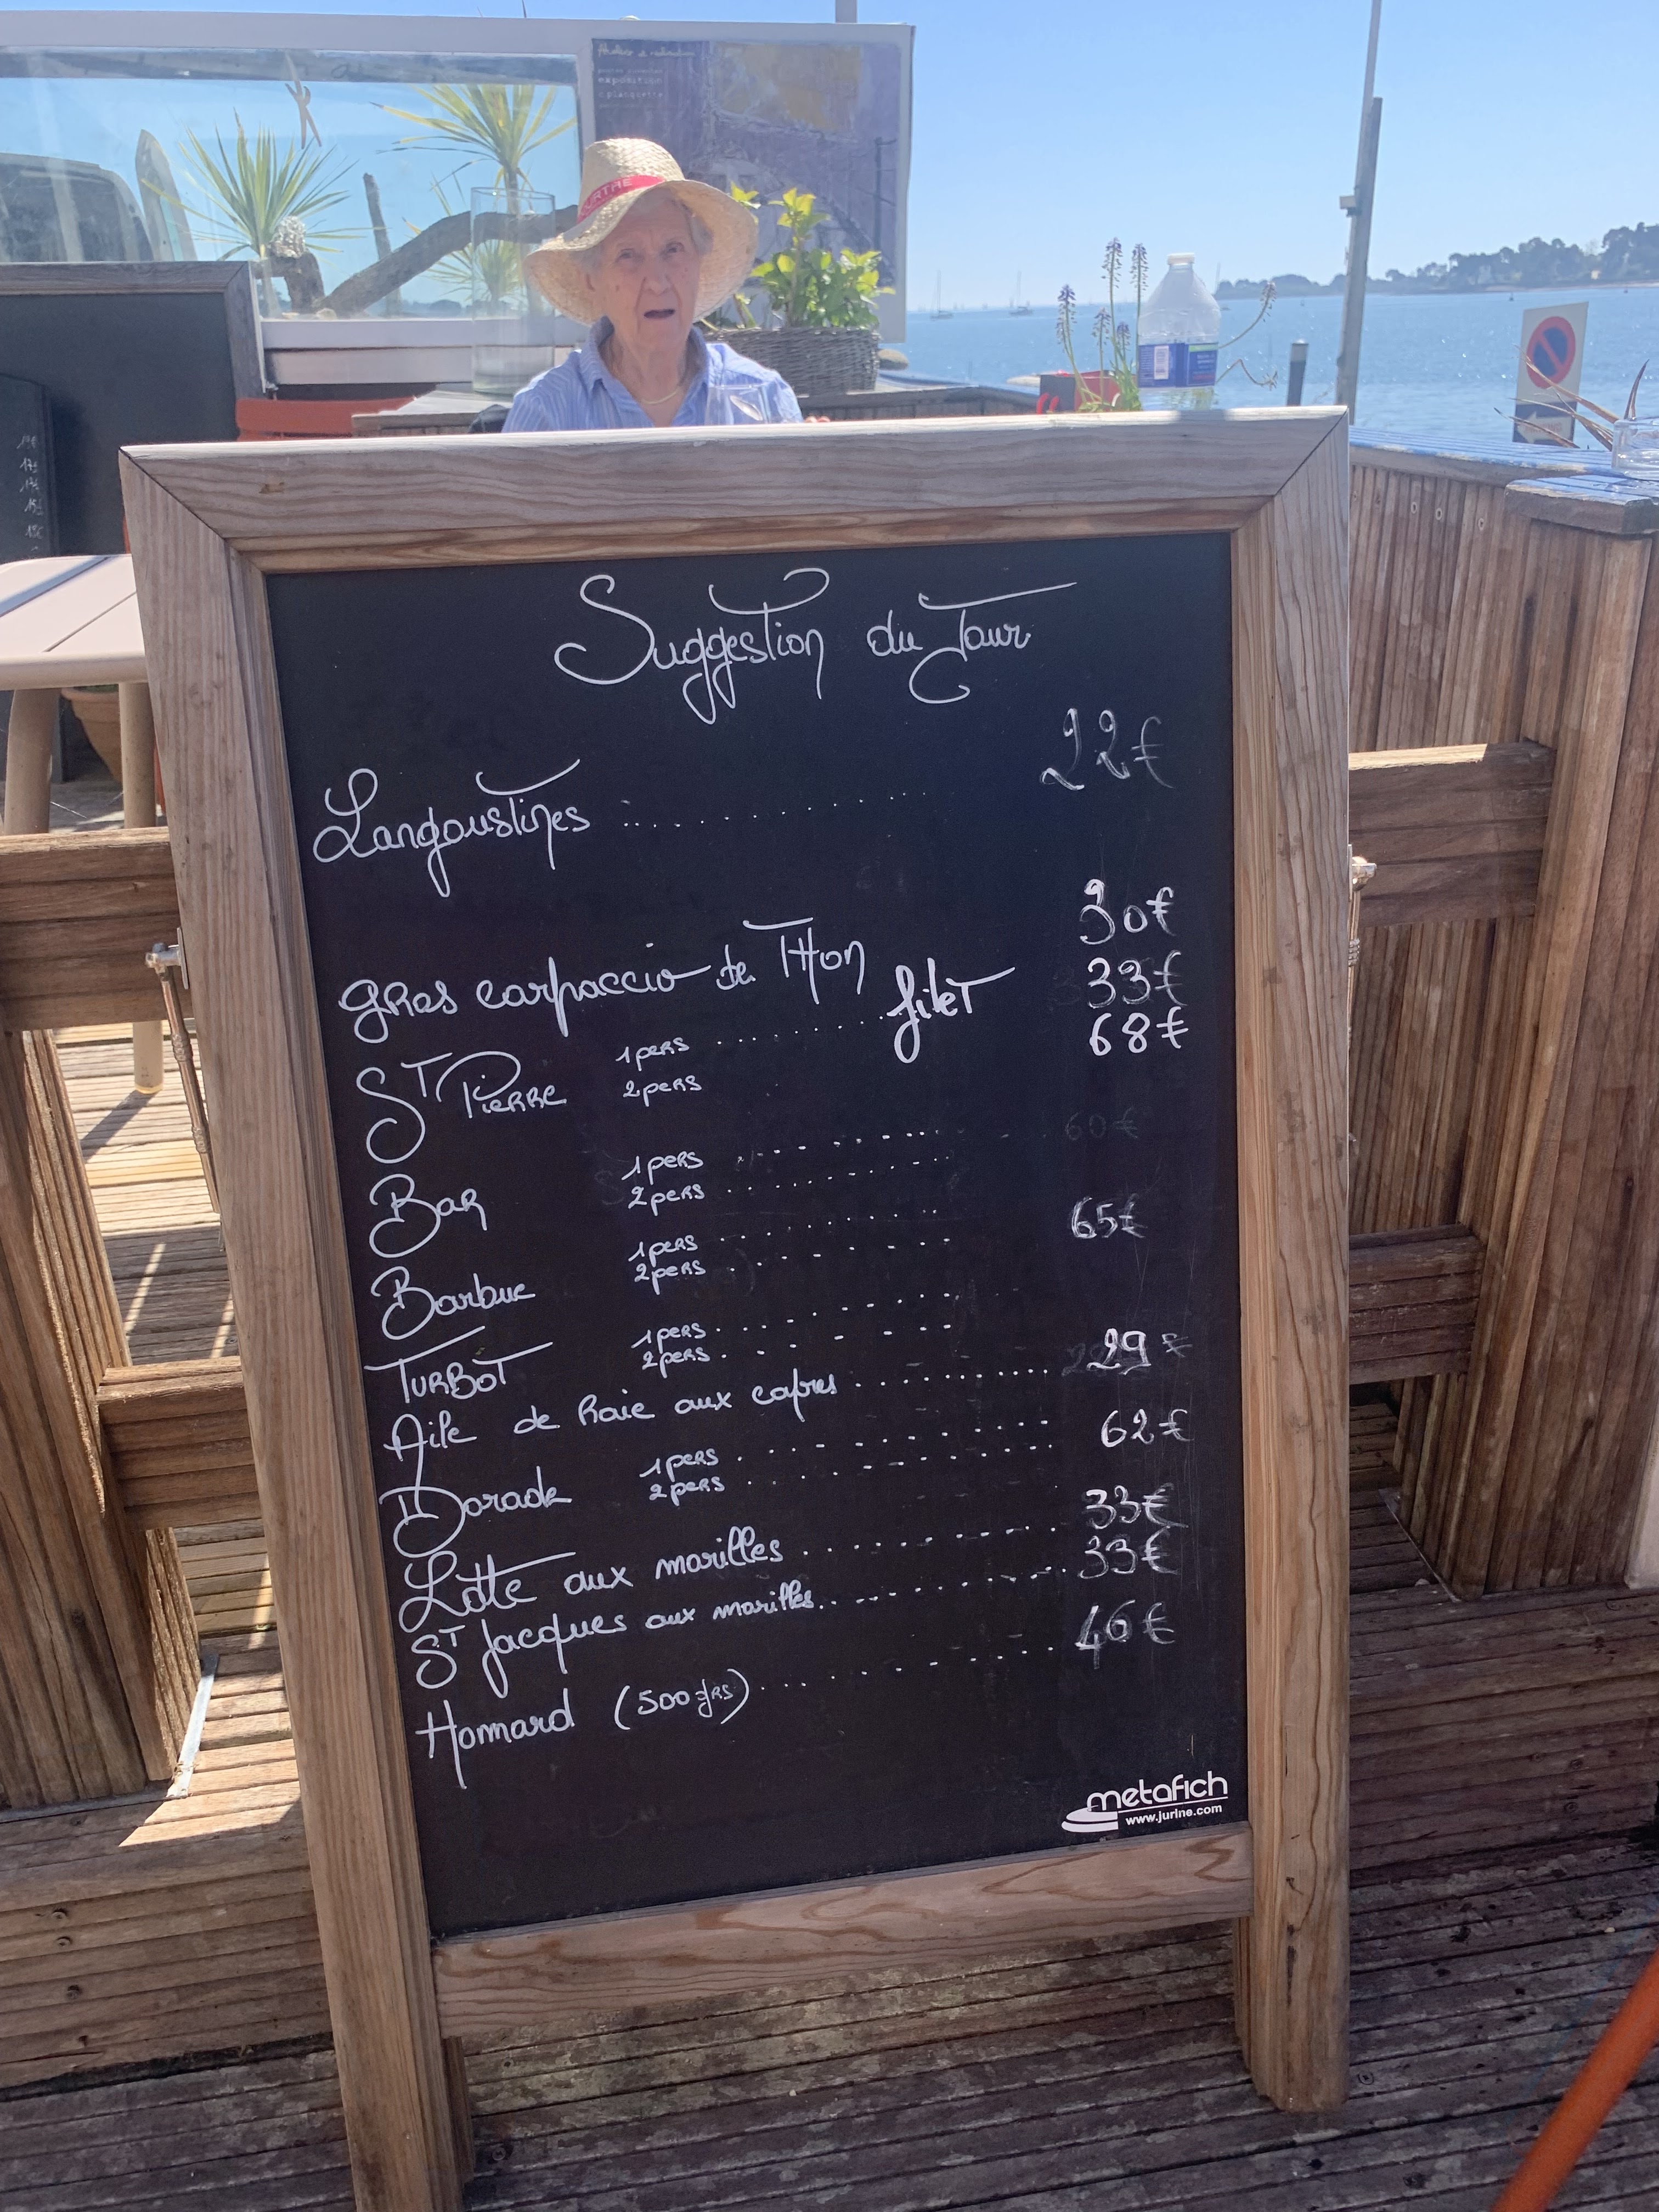 exposition
Suggestion du Jour
Langoustines ............ 22€
gros carpaccio de THon 30€
ST PiERRE 1 pers ......... filet 33€
2 pers 68€
Bar 1 pers ............
2 pers ............ 60€
Barbue 1 pers ............
2 pers ............ 65€
TURBOT 1 pers ............
2 pers ............
Aile de Raie aux capres ............ 29€
Dorade 1 pers ............
2 pers ............ 62€
Lotte aux morilles ............ 33€
ST Jacques aux morilles ............ 33€
Homard (500grs) ............ 46€
metafich
www.jurine.com